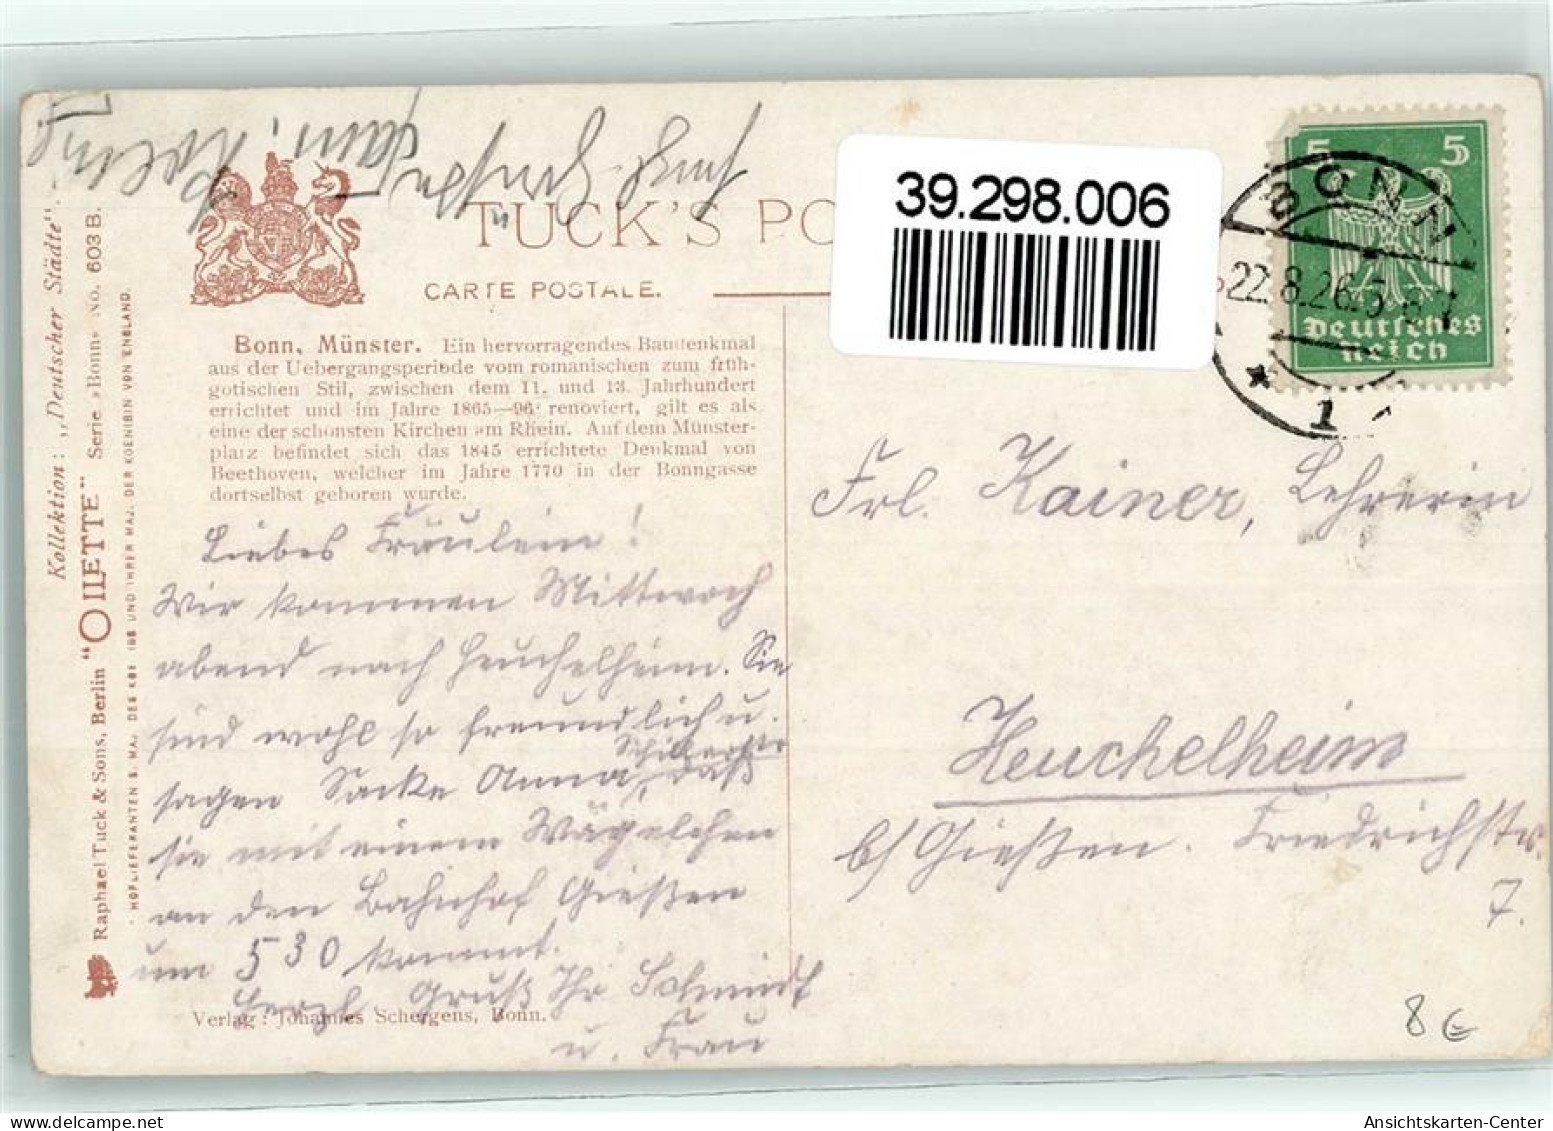 39.298.006
TUCK'S PO
CARTE POSTALE.
BONN
22.8.26.5
*
1
5 5
Deutsches
Reich
Kollektion: „Deutscher Städte“.
Raphael Tuck & Sons, Berlin “OILETTE” Serie »Bonn« No. 603 B.
HOFLIEFERANTEN S. MAJ. DES KOE IGS UND IHRER MAJ. DER KOENIGIN VON ENGLAND.
Bonn, Münster. Ein hervorragendes Baudenkmal
aus der Uebergangsperiode vom romanischen zum früh-
gotischen Stil, zwischen dem 11. und 13. Jahrhundert
errichtet und im Jahre 1865—96 renoviert, gilt es als
eine der schönsten Kirchen am Rhein. Auf dem Münster-
platz befindet sich das 1845 errichtete Denkmal von
Beethoven, welcher im Jahre 1770 in der Bonngasse
dortselbst geboren wurde.
Liebes Fräulein!
Wir kommen Mittwoch
abend nach Heuchelheim. Sie
sind wohl so freundlich u.
sagen Sacke Anna, daß
sie mit einem Wägelchen
an den Bahnhof Gießen
um 530 kommt.
Herzl. Gruß Ihr Schmidt
u. Frau
Verlag: Johannes Schergens, Bonn.
Frl. Kainer, Lehrerin
Heuchelheim
b/ Gießen. Friedrichstr.
7.
8 €
Ansichtskarten-Center